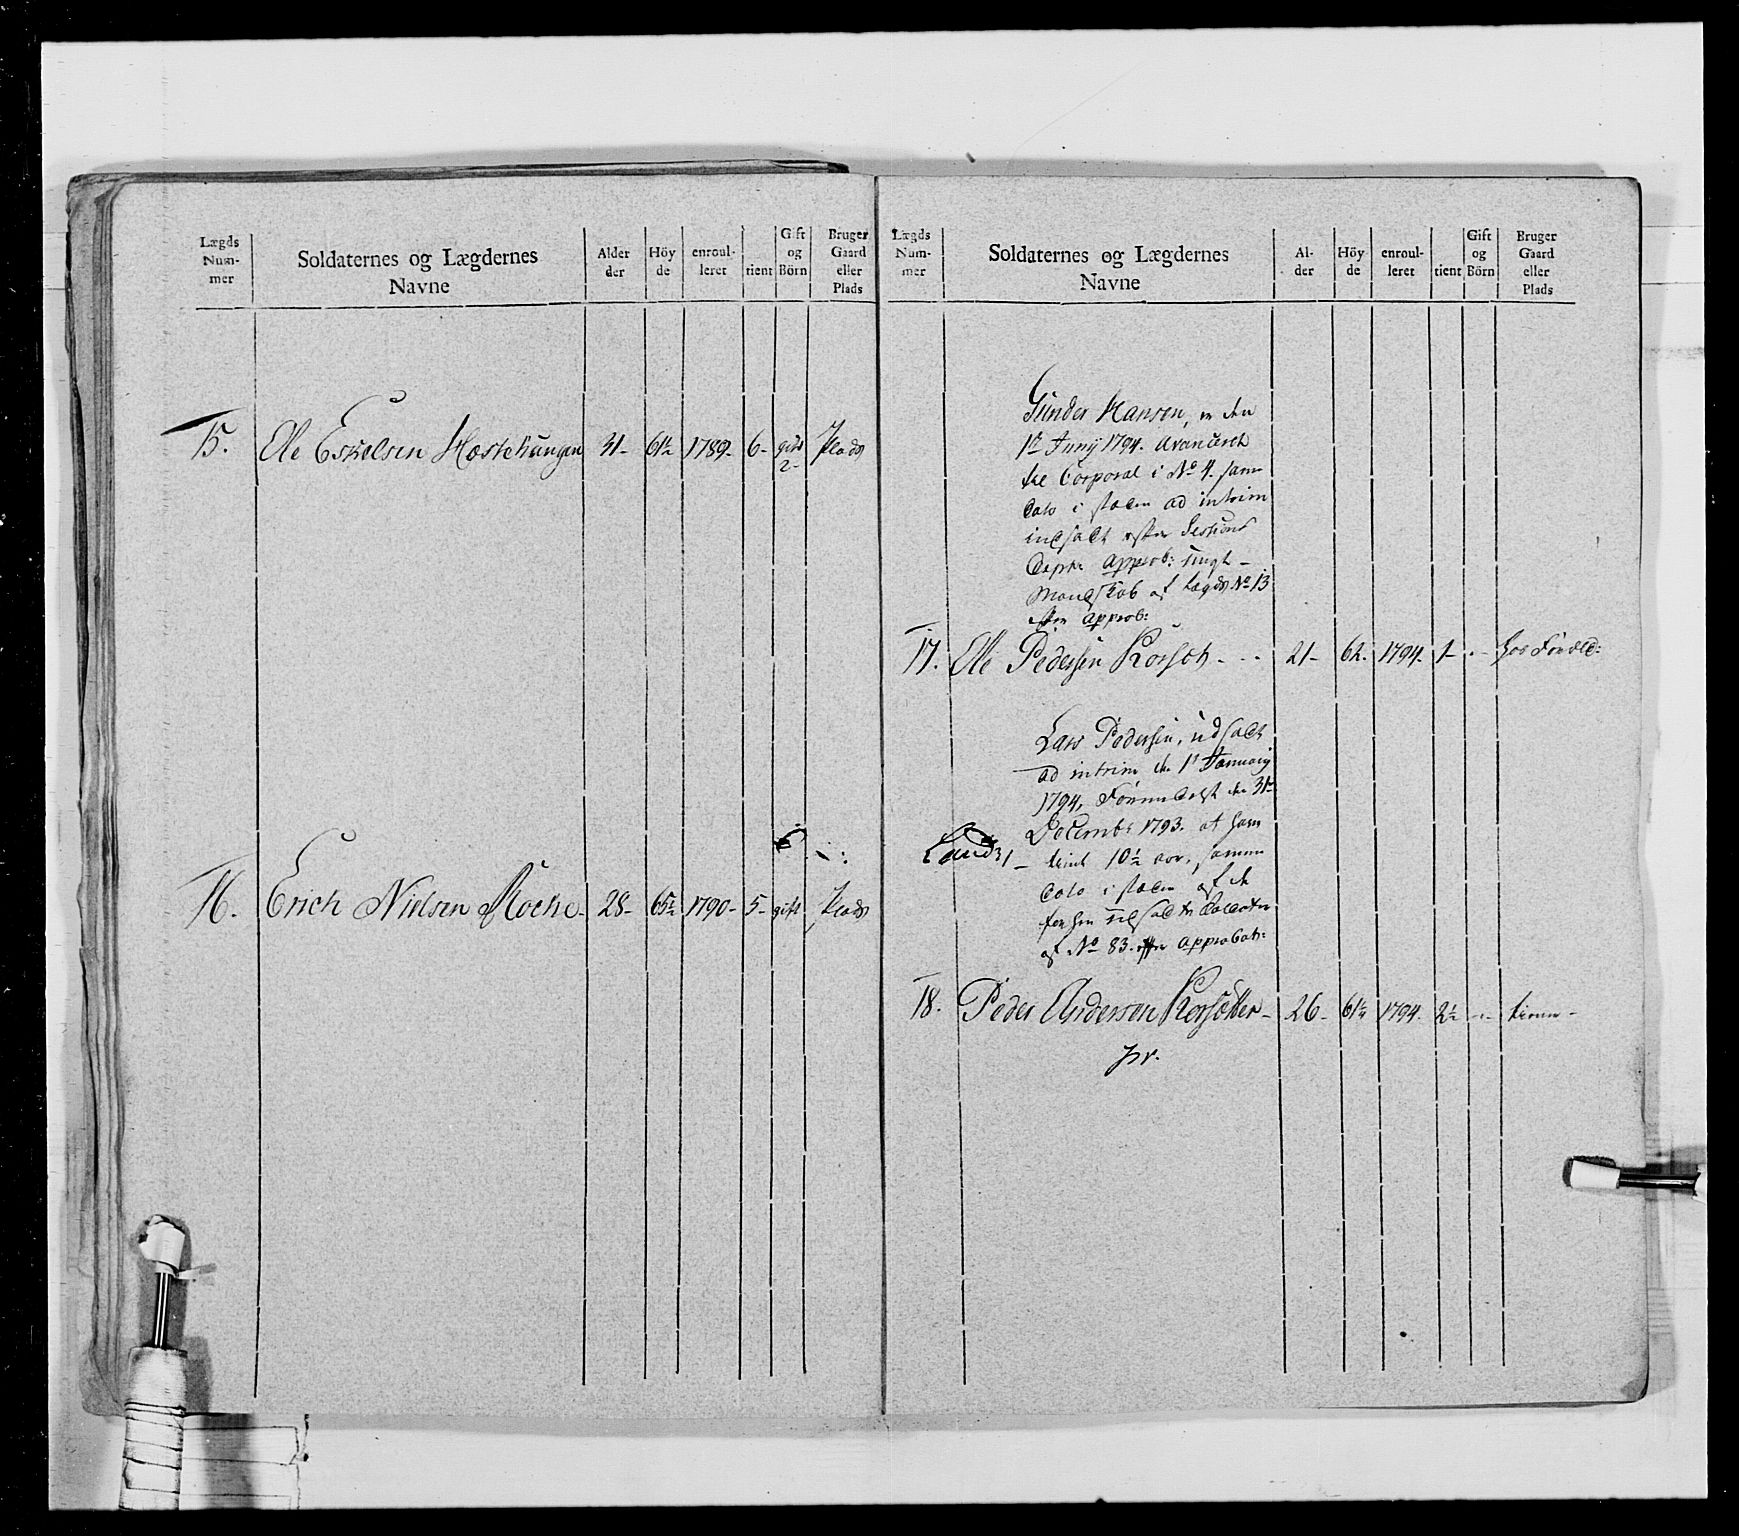 Lægds
Num-
mer
Soldaternes og Lægdernes
Navne
Alder
der
Höy
de
enroul-
leret
tient
Gift
og
Börn
Bruger
Gaard
eller
Plads
15. Ole Eskelsen 31- 61½ 1789- 6- gift 2- Plads
16. Erich Nielsen Moche- 28- 65½ 1790- 5- gift Plads
Lægds
Num-
mer
Soldaternes og Lægdernes
Navne
Al-
der
Höy
de
enroul-
leret
tient
Gift
og
Börn
Bruger
Gaard
eller
Plads
Gunder Hansen, er den
1te Junij 1794. avanceret
til Corporal i No 4. samme
Dato i steden ad intrim
indsadt efter Sessions
approb: ungt-
Mandskab af Lægds No 13
efter approb:
17. Ole Pedersen 21- 62. 1794. 1-
Lars Pedersen, udsadt
ad intrim den 1t Januarij
1794, den 31te
Decembr 1793. at have
tient 10½ aar, samme
Dato i steden af de
af No 83. efter approbat:
18. Peder Andersen 26- 61½ 1794. 2½